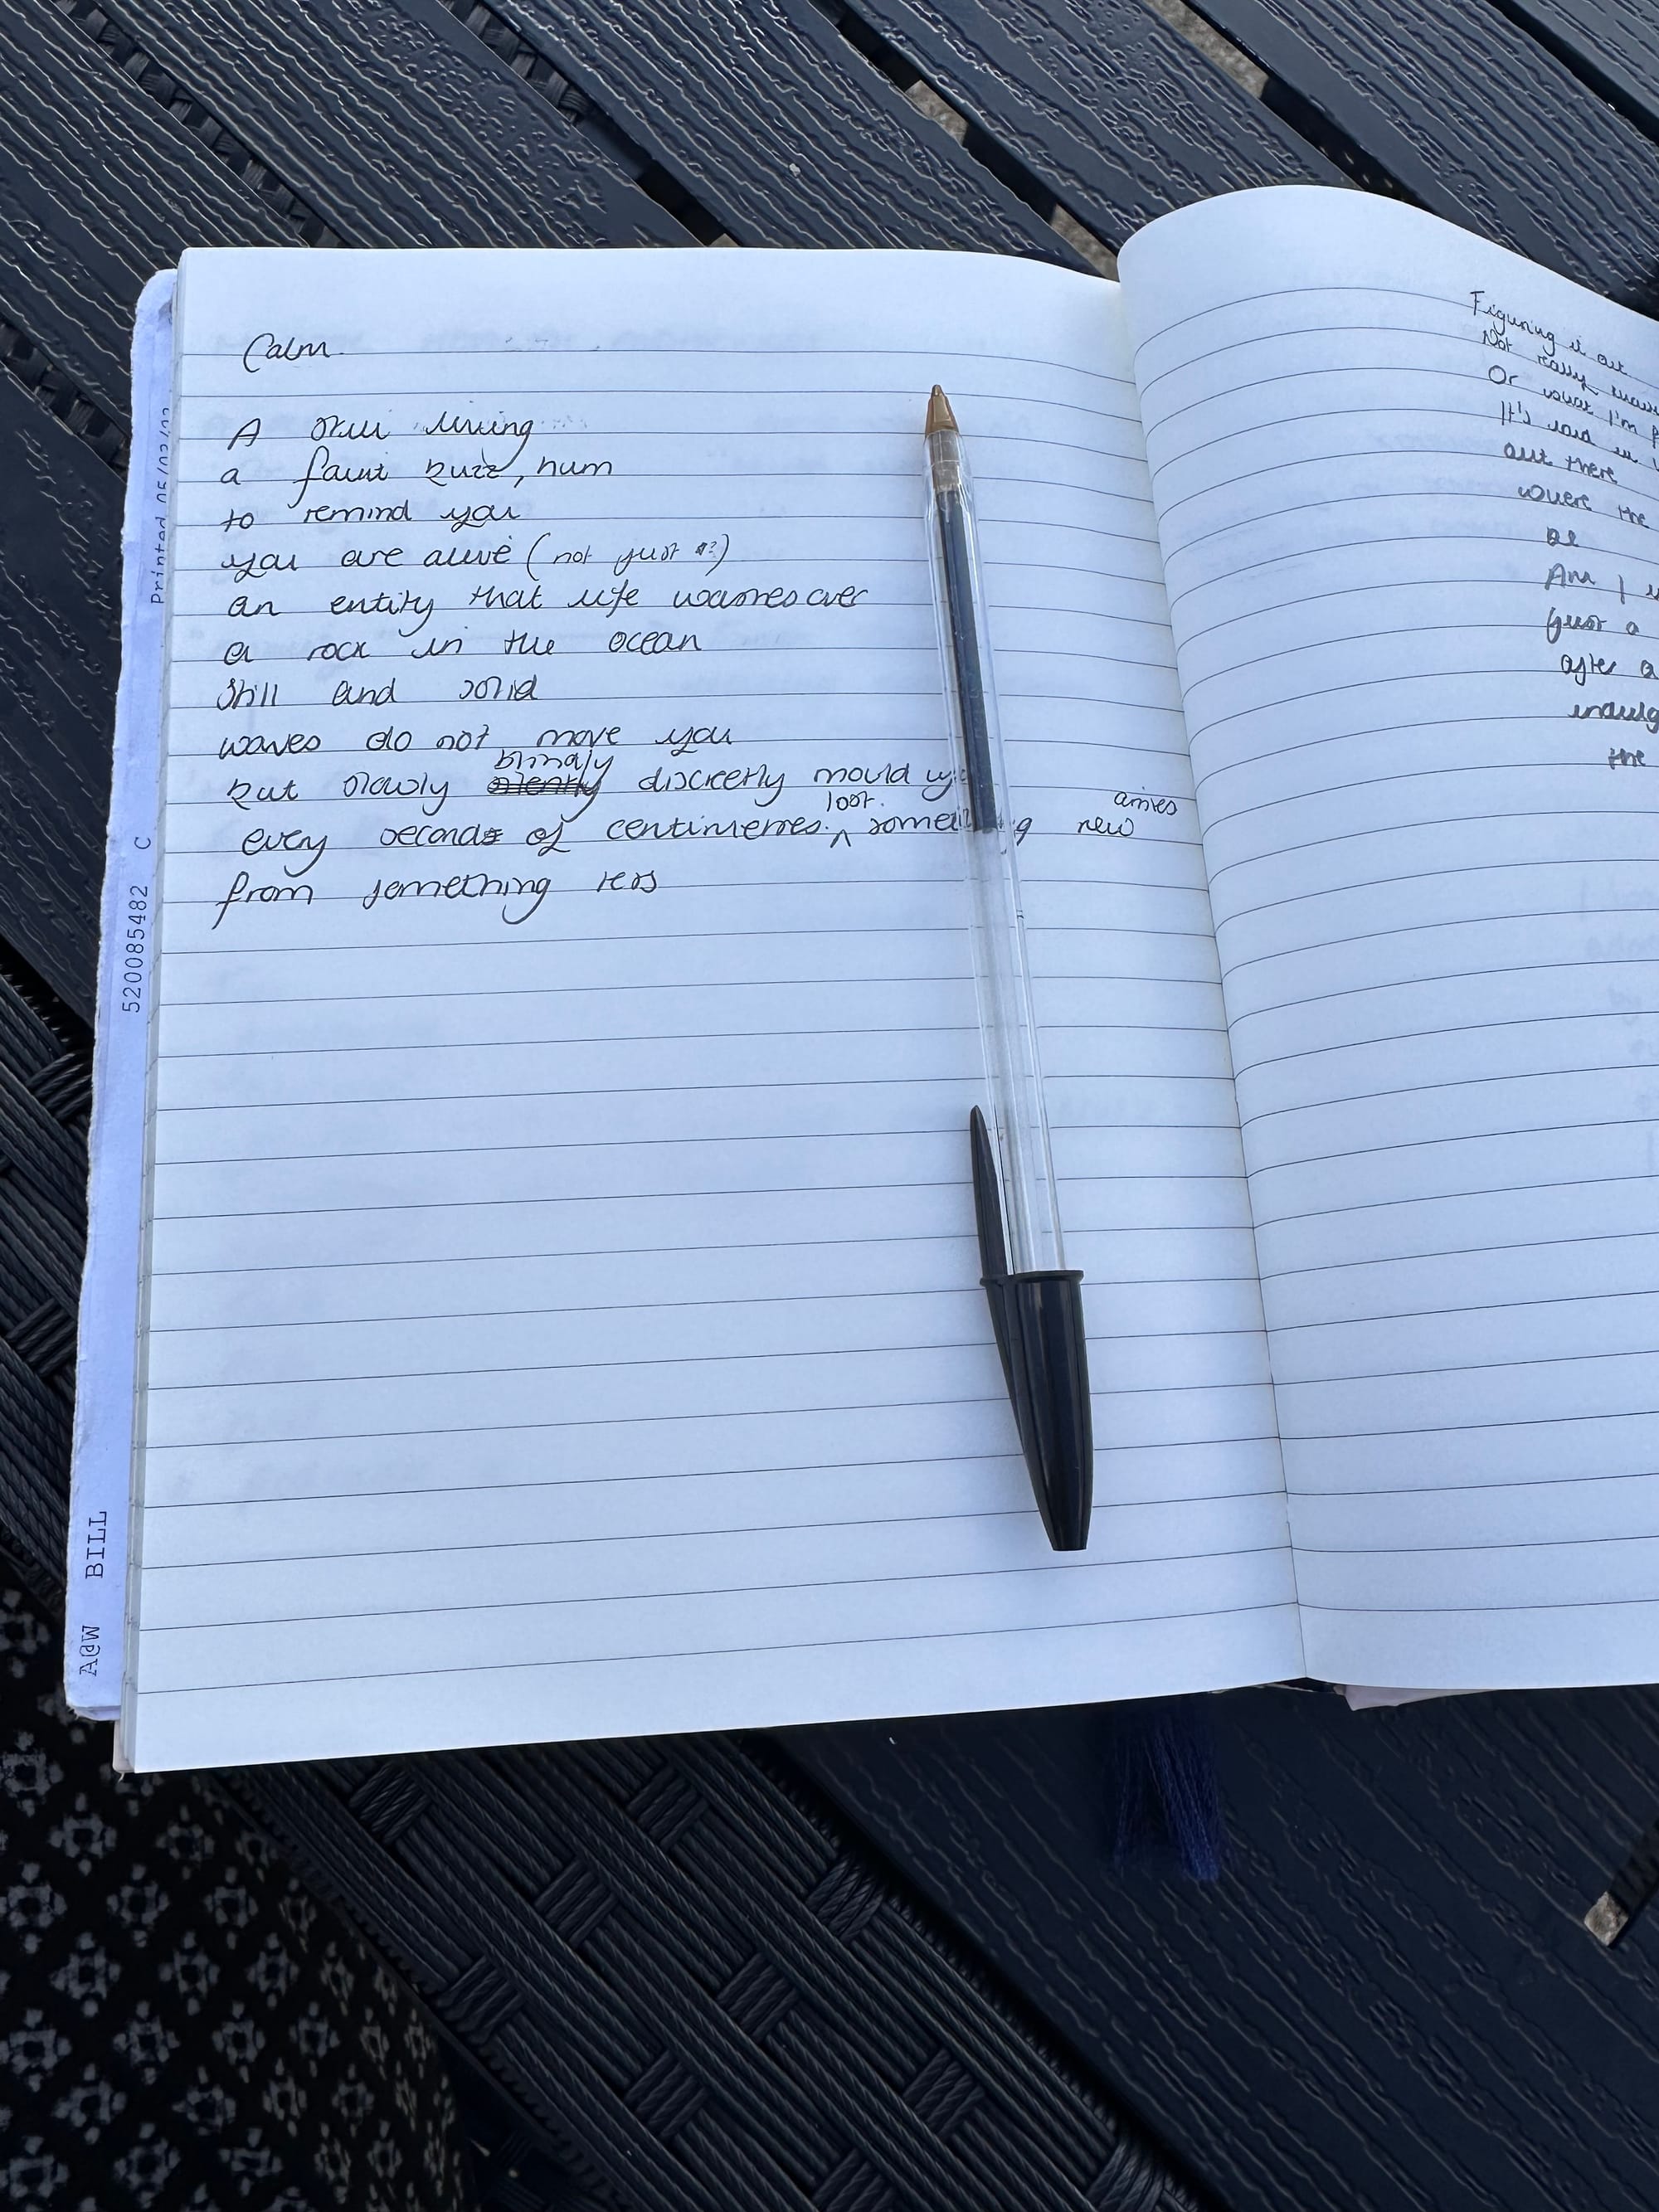 Calm.
A still living
a faint buzz, hum
to remind you
you are alive (not just ?)
an entity that life washes over
a rock in the ocean
still and solid
waves do not move you
blindly
but slowly silently discreetly mould
lost. arrives
every seconds of centimetres. ^ something new
from something less
Figuring it out
Not really
Or what I'm
It's said in
out there
where the
be
Am I
just a
after a
indulg
the
Printed 05/02/
520085482 C
A@W BILL